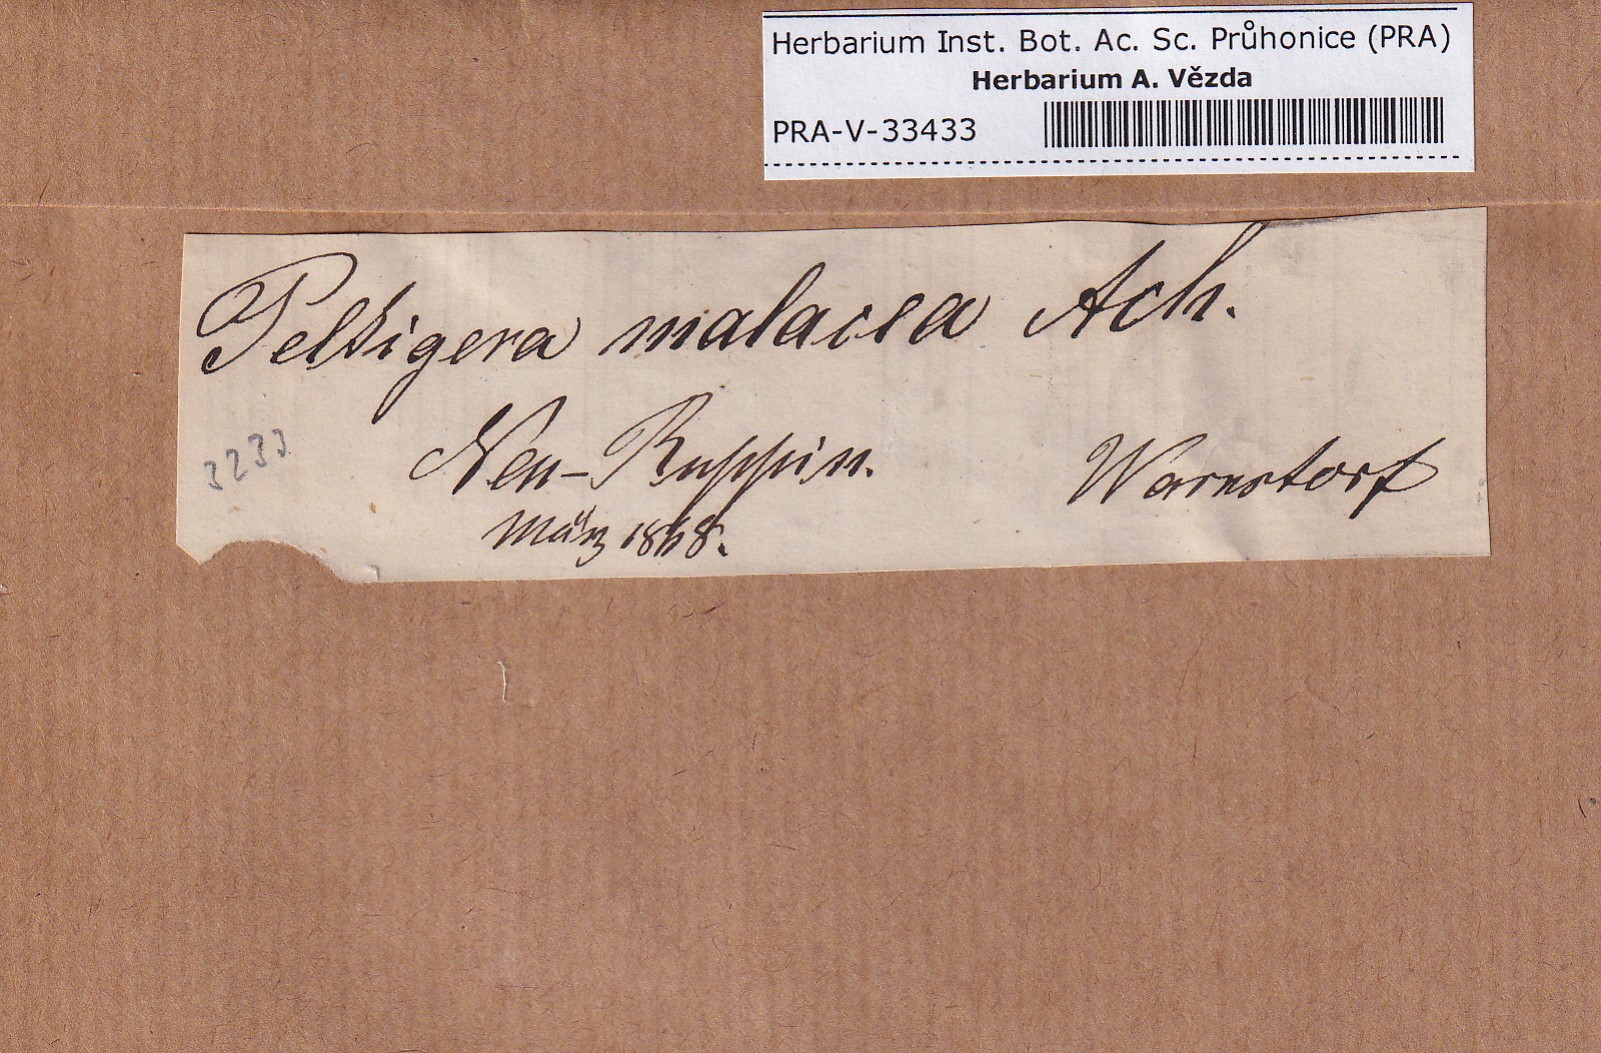 Herbarium Inst. Bot. Ac. Sc. Průhonice (PRA)
Herbarium A. Vězda
PRA-V-33433
Peltigera malacea Ach.
3233
Neu-Ruppin. Warnstorf
März 1868.